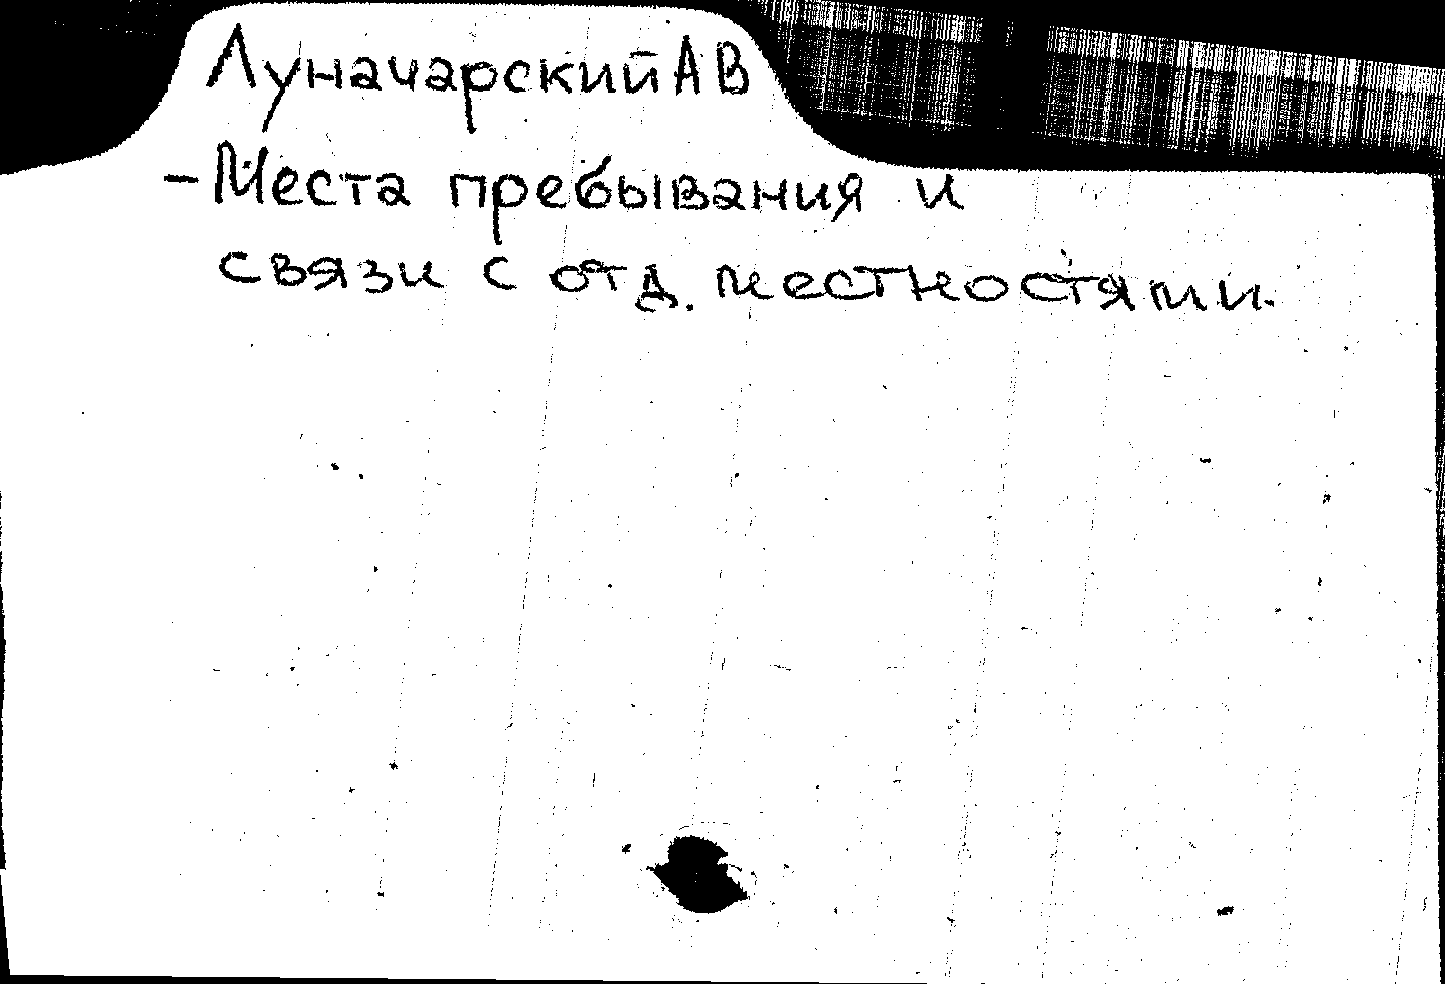 Луначарский А В
- Места пребывания и
связи с отд. местностями.